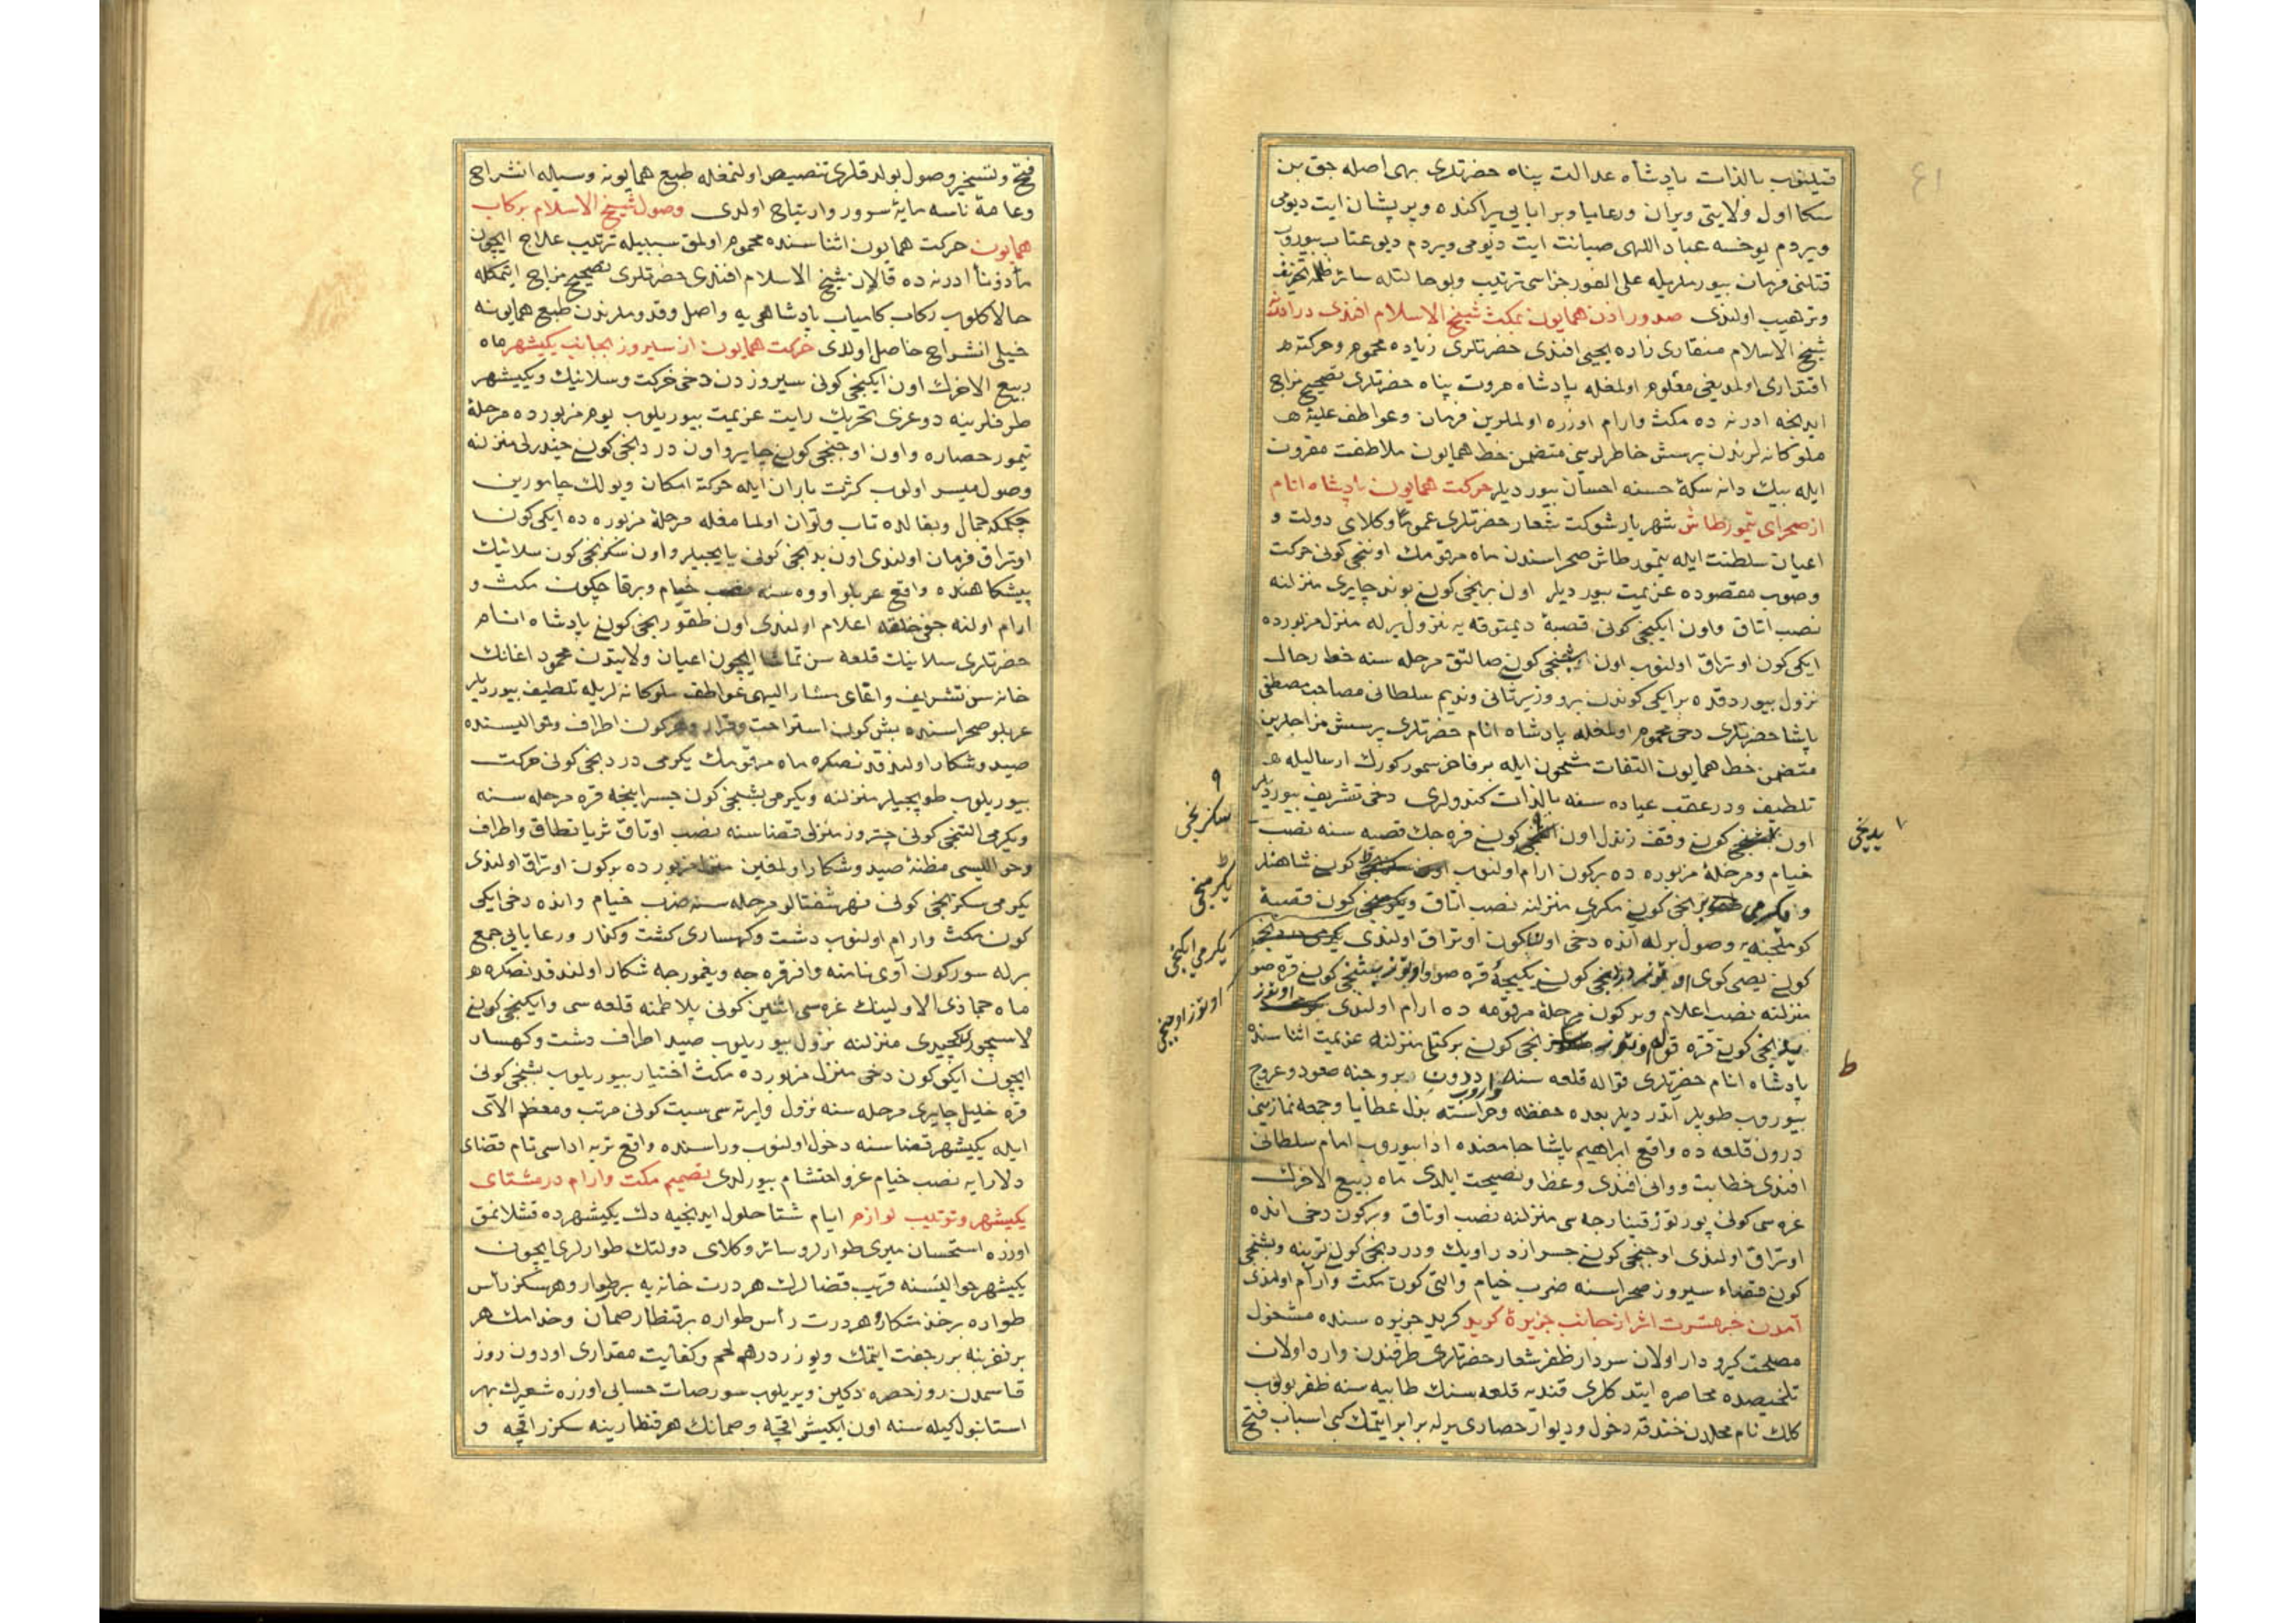 ٤١
قیلنوب بالذات پادشاه عدالت پناه حضرتلری بهی اصله جق بن
سکا اول ولایتی ویران ورعایا وبرایایی پراکنده وپریشان ایت دیومی
ویردم یوخسه عباد اللهی صیانت ایت دیومی ویردم دیو عتاب بیوروب
قتلنی فرمان بیورملریله علی الفور جزاسی ترتیب وبو حالتله سائر ظلمه تخویف
وترهیب اولندی صدور اذن همایون بمکث شیخ الاسلام افندی در ادرنه
شیخ الاسلام منقاری زاده یحیی افندی حضرتلری زیاده محموم وحرکته
اقتداری اولمدیغی معلوم اولمغله پادشاه مروت پناه حضرتلری تصحیح مزاج
ایدنجه ادرنه ده مکث وارام اوزره اولملرین فرمان وعواطف علیۀ
ملوکانه لرندن پرسش خاطرلرینی متضمن خط همایون ملاطفت مقرون
ایله بیک دانه سکۀ حسنه احسان بیوردیلر حرکت همایون پادشاه انام
از صحرای تیمورطاش شهریار شوکت شعار حضرتلری عموما وکلای دولت و
اعیان سلطنت ایله تیمورطاش صحراسندن ماه مرقومک اوننجی کونی حرکت
وصوب مقصوده عزیمت بیوردیلر اون برنجی کونی بوند چایری منزلنه
نصب اتاق واون ایکنجی کونی قصبۀ دیمتوقه یه نزول برله منزل مزبورده
ایکی کون اوتراق اولنوب اون بشنجی کونی صالتق مرحله سنه خط رحال
نزول بیوردقده بر ایکی کوندن برو وزیر ثانی وندیم سلطانی مصاحب مصطفی
پاشا حضرتلری دخی محموم اولمغله پادشاه انام حضرتلری پرسش مزاجلرین
متضمن خط همایون التفات مشحون ایله بر فاخر سمور کورک ارسالیله
تلطیف ودر عقب عیاده سنه بالذات کندولری دخی تشریف بیوردیلر
اون کونی وقف زندل اون کونی فره جک قصبه سنه نصب
خیام ومرحلۀ مزبوره ده بر کون ارام اولنوب کونی شاهنلر
و یکرمی برنجی کونی مکری منزلنه نصب اتاق کون قصبۀ
کوملجنه یه وصول برله آنده دخی کون اوتراق اولندی
کونی یصی کوی کونی یکیجۀ قره صو کونی قره صو
منزلنه نصب اعلام وبر کون مرحلۀ مرقومه ده ارام اولندی
کونی قره کونی برکتلی منزلنه عزیمت اثناسنده
پادشاه انام حضرتلری قواله قلعه سنه واروب درون بروجنه صعود وعروج
بیوروب طوپلر آتدردیلر بعده حفظه وحراسته بذل عطایا وجمعه نمازینی
درون قلعه ده واقع ابراهیم پاشا جامعنده ادا بیوروب امام سلطانی
افندی خطابت ووانی افندی وعظ ونصیحت ایلدی ماه ربیع الاخرک
غره سی کونی منزلنه نصب اوتاق وبر کون دخی انده
اوتراق اولندی اوچنجی کونی جسر ازدراویک ودردنجی کونی وبشنجی
کونی قضاء سیروز صحراسنه ضرب خیام والتی کون مکث وارام اولندی
آمدن خبر مسرت اثر از جانب جزیرۀ کرید کرید جزیره سنده مشغول
مصلحت کیرودار اولان سردار ظفر شعار حضرتلری طرفندن وارد اولان
تلخیصده محاصره ایتدکلری قندیه قلعه سنک طابیه سنه ظفر بولوب
کلک نام محلدن خندقه دخول ودیوار حصاری یرله برابر ایتمک کبی اسباب فتح
یدنجی
سکزنجی
یکرمنجی
یکرمی ایکنجی
اوتوز اوچنجی
فتح وتسخیر وصول بولدقلری تنصیص اولنمغله طبع همایونه وسیلۀ انشراح
وعامۀ ناسه مایۀ سرور وارتیاح اولدی وصول شیخ الاسلام برکاب
همایون حرکت همایون اثناسنده محموم اولمق سببیله ترتیب علاج ایچون
مأذونا ادرنه ده قالان شیخ الاسلام افندی حضرتلری تصحیح مزاج ایتمکله
حالا کلوب رکاب کامیاب پادشاهی یه واصل وقدوملرندن طبع همایونه
خیلی انشراح حاصل اولدی حرکت همایون از سیروز بجانب یکیشهر ماه
ربیع الاخرک اون ایکنجی کونی سیروزدن دخی حرکت وسلانیک ویکیشهر
طرفلرینه دوغری تحریک رایت عزیمت بیوریلوب یوم مزبورده مرحلۀ
تیمورحصاره واون اوچنجی کونی چایر و اون دردنجی کونی چندرلی منزلنه
وصول میسر اولوب کثرت باران ایله حرکته امکان ویوللرک چامورین
چکمکه جمال وبقالده تاب وتوان اولمامغله مرحلۀ مزبوره ده ایکی کون
اوتراق فرمان اولندی اون یدنجی کونی یایجیلر واون سکزنجی کون سلانیک
پیشکاهنده واقع عربلو اووه سنه نصب خیام وبر قاچ کون مکث و
ارام اولنه جغی خلقه اعلام اولندی اون طقوزنجی کونی پادشاه انام
حضرتلری سلانیک قلعه سن تماشا ایچون اعیان ولایتدن محمود اغانک
خانه سن تشریف واغای مشار الیهی عواطف ملوکانه لریله تلطیف بیوردیلر
عربلو صحراسنده بش کون استراحت وقرار وهر کون اطراف وحوالیسنده
صید وشکار اولندقدنصکره ماه مرقومک یکرمی دردنجی کونی حرکت
بیوریلوب طوپجیلر منزلنه ویکرمی بشنجی کون جسر اینجه قره مرحله سنه
ویکرمی التنجی کونی چتروز منزلی قضاسنه نصب اوتاق ثریا نطاق واطراف
وحوالیسی مظنۀ صید وشکار اولمغین منزل مزبورده بر کون اوتراق اولندی
یکرمی سکزنجی کونی نهر شفتالو مرحله سنه ضرب خیام وانده دخی ایکی
کون مکث وارام اولنوب دشت وکهساری کشت وکذار ورعایایی جمع
برله سورکون آوی نامنه وافر قره جه ویغمورجه شکار اولندقدنصکره
ماه جماذی الاولینک غره سی اثنین کونی پلاطمنه قلعه سی وایکنجی کونی
منزلنه نزول بیوریلوب صید اطراف دشت وکهسار
ایچون ایکی کون دخی منزل مزبورده مکث اختیار بیوریلوب بشنجی کونی
قره خلیل چایری مرحله سنه نزول وایرته سی سبت کونی مرتب ومعظم الآی
ایله یکیشهر قضاسنه دخول اولنوب وراسنده واقع تربه اداسی نام فضای
دلارایه نصب خیام عز واحتشام بیورلدی تصمیم مکث وارام در مشتای
یکیشهر وترتیب لوازم ایام شتا حلول ایدنجیه دک یکیشهرده قشلانمق
اوزره استحسان میری طوارلر وسائر وکلای دولتک طوارلری ایچون
یکیشهر حوالیسنه قریب قضالرک هر درت خانه یه بر طوار وهر سکز رأس
طواره بر خدمتکار وهر درت رأس طواره بر قنطار صمان وخدامک هر
بر نفرینه بر جفت ایتمک ویوزر درهم لحم وکفایت مقداری اودون روز
قاسمدن روز خضره دکین ویریلوب سورصات حسابی اوزره شعیرک بهر
استانبول کیله سنه اون ایکیشر اقچه وصمانک هر قنطارینه سکزر اقچه و